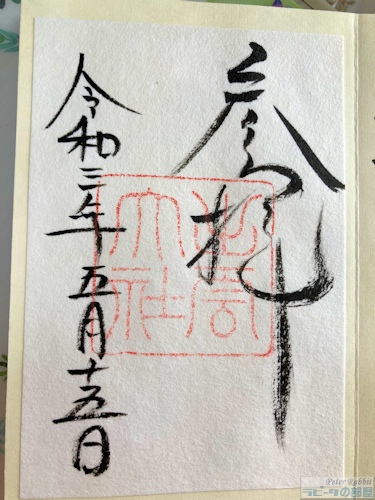 参拝
大社
令和三年五月十五日
Peter Rabbit
ラビータの部屋